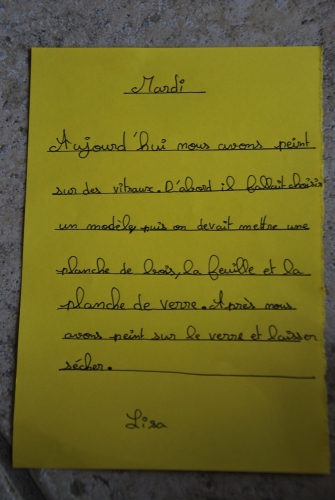 Mardi
Aujourd'hui nous avons peint
sur des vitraux. D'abord il fallait choisir
un modèle puis on devait mettre une
planche de bois, la feuille et la
planche de verre. Après nous
avons peint sur le verre et laisser
sécher.
Lisa